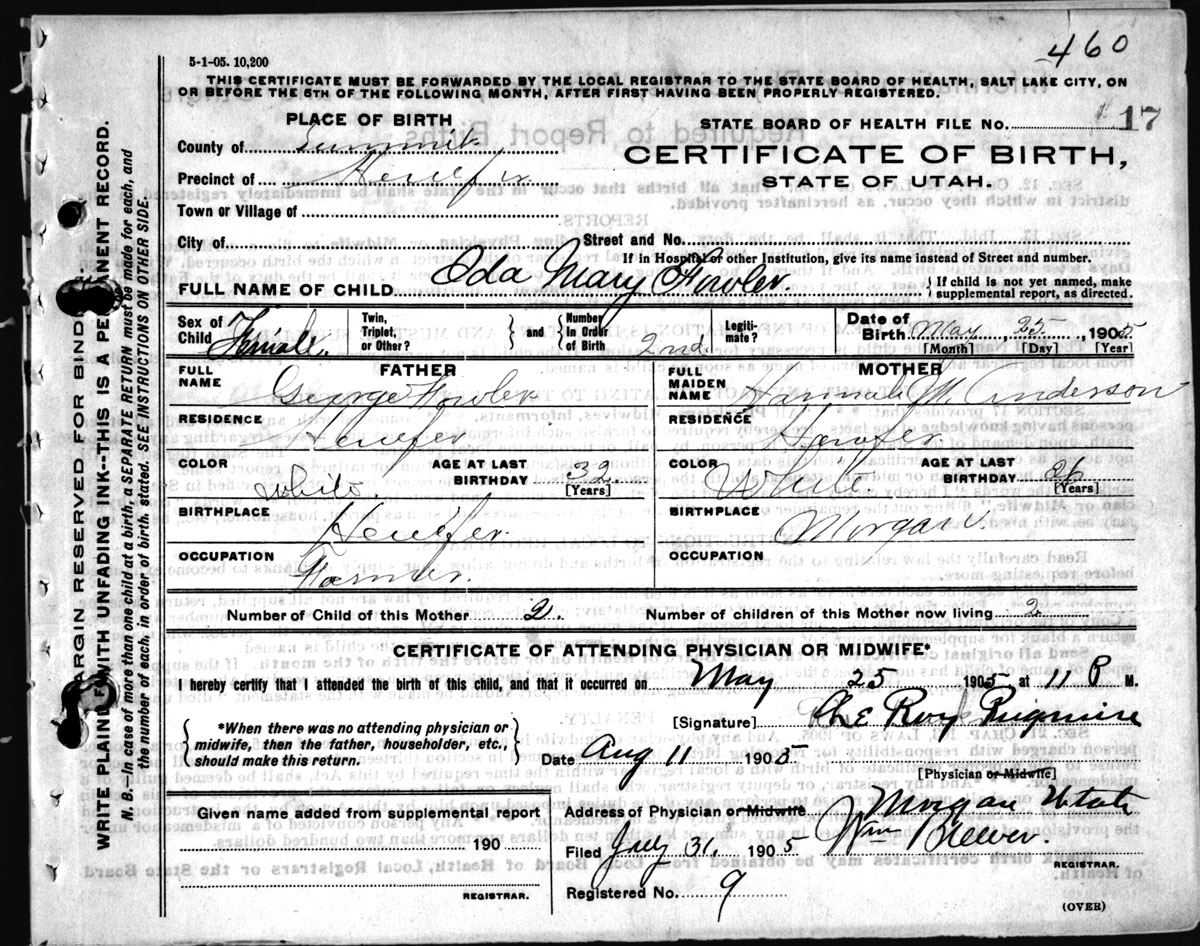 460
5-1-05. 10,200
THIS CERTIFICATE MUST BE FORWARDED BY THE LOCAL REGISTRAR TO THE STATE BOARD OF HEALTH, SALT LAKE CITY, ON
OR BEFORE THE 5TH OF THE FOLLOWING MONTH, AFTER FIRST HAVING BEEN PROPERLY REGISTERED.
PLACE OF BIRTH
STATE BOARD OF HEALTH FILE NO. 17
County of Summit
CERTIFICATE OF BIRTH,
Precinct of Henefer
STATE OF UTAH.
Town or Village of
City of Street and No.
If in Hospital or other Institution, give its name instead of Street and number.
FULL NAME OF CHILD Ida Mary Fowler. { If child is not yet named, make
supplemental report, as directed.
Sex of Child Female. Twin, Triplet, or Other? } and { Number In Order of Birth 2nd Legiti- mate? Date of Birth May, 25, 1905
[Month] [Day] [Year]
FATHER
FULL NAME George Fowler
RESIDENCE Henefer
COLOR White. AGE AT LAST BIRTHDAY 32
[Years]
BIRTHPLACE Henefer.
OCCUPATION Farmer.
MOTHER
FULL MAIDEN NAME Hannah M. Anderson
RESIDENCE Henefer.
COLOR White. AGE AT LAST BIRTHDAY 26
[Years]
BIRTHPLACE Morgan.
OCCUPATION
Number of Child of this Mother 2. Number of children of this Mother now living 2
CERTIFICATE OF ATTENDING PHYSICIAN OR MIDWIFE*
I hereby certify that I attended the birth of this child, and that it occurred on May 25 1905 at 11 P M.
{ *When there was no attending physician or
midwife, then the father, householder, etc.,
should make this return. }
[Signature] Roy
Date Aug 11 1905
[Physician or Midwife]
Given name added from supplemental report
190
REGISTRAR.
Address of Physician or Midwife Morgan Utah
Filed July 31, 1905 Wm Brewer.
REGISTRAR.
Registered No. 9
(OVER)
MARGIN RESERVED FOR BINDING.
WRITE PLAINLY WITH UNFADING INK--THIS IS A PERMANENT RECORD.
N. B.--In case of more than one child at a birth, a SEPARATE RETURN must be made for each, and
the number of each, in order of birth, stated. SEE INSTRUCTIONS ON OTHER SIDE.